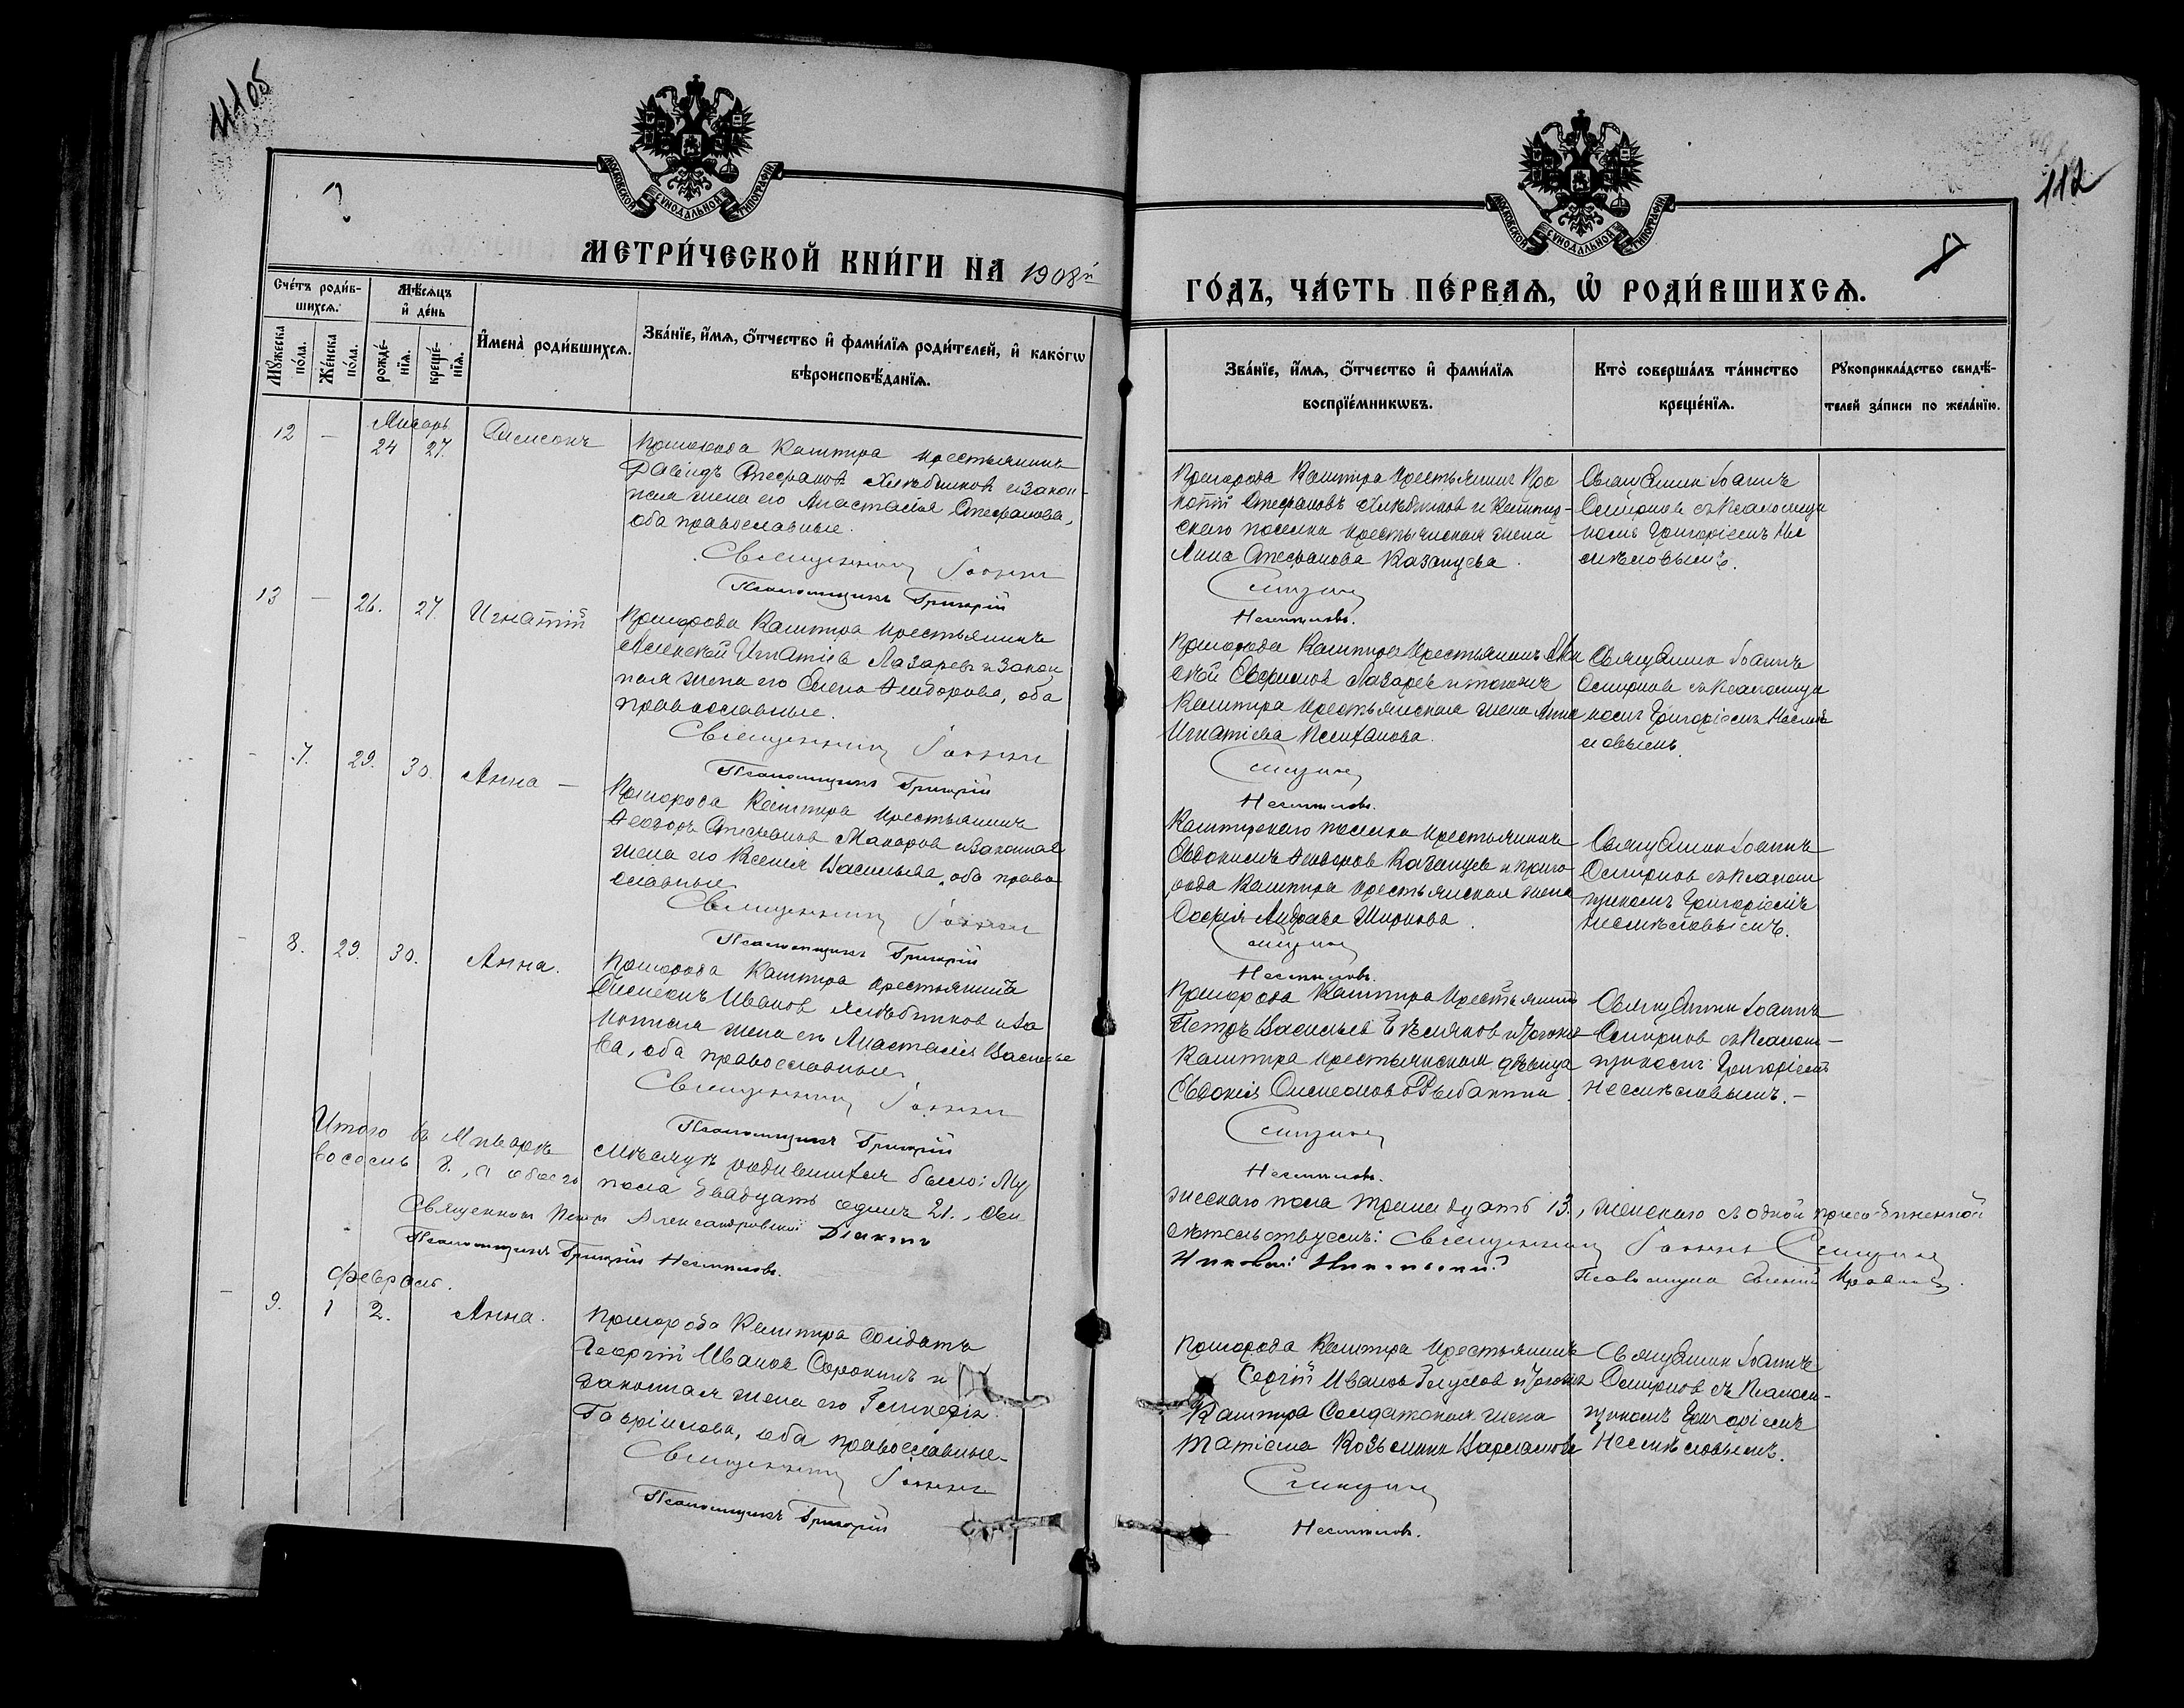 112
МЕТРИ́ЧЕСКОЙ КНИ́ГИ НА 1908й
ГО́ДЪ, ЧА́СТЬ ПЕ́РВАѦ, Ѽ РОДИ́ВШИХСѦ.
МОСКОВСКОЙ СѴНОДАЛЬНОЙ ТИПОГРАФІИ
МОСКОВСКОЙ СѴНОДАЛЬНОЙ ТИПОГРАФІИ
Сче́тъ роди́в-
шихсѧ.
Мѣ́сѧцъ
и҆ де́нь
Мꙋ́жеска
по́ла.
Же́нска
по́ла.
рожде́-
нїѧ.
креще́-
нїѧ.
И҆мена̀ роди́вшихсѧ.
Зва́нїе, и҆́мѧ, ѻ҆́тчество и҆ фами́лїѧ роди́телей, и҆ како́гѡ
вѣроисповѣ́данїѧ.
Зва́нїе, и҆́мѧ, ѻ҆́тчество и҆ фами́лїѧ
воспрїе́мникѡвъ.
Кто̀ соверша́лъ та́инство
креще́нїѧ.
Рꙋкоприкла́дство свидѣ́-
телей за́писи по жела́нїю.
Январь
12 — 24 27. Симеонъ
Пригорода Каштира крестьянинъ
Давидъ Стефанов Хлебников и закон-
ная жена его Анастасія Стефанова,
оба православные.
Священникъ Іоаннъ
Псаломщикъ Григорій
Пригорода Каштира крестьянин Про
копій Стефановъ Хлебников и Каштир-
скаго поселка крестьянская жена
Анна Стефанова Казанцева.
Смирнов
Несмеловъ.
Священник Іоаннъ
Смирнов съ Псаломщи
комъ Григоріемъ Не
смѣловымъ.
13 — 26. 27. Игнатій
Пригорода Каштира крестьянинъ
Алексѣй Игнатіев Лазарев и закон
ная жена его Елена Ѳеодорова, оба
православные.
Священникъ Іоаннъ
Псаломщикъ Григорій
Пригорода Каштира крестьянинъ Але
ксѣй Евфимов Лазарев и тогоже
Каштира крестьянская жена Анна
Игнатіева
Смирнов
Несмеловъ.
Священник Іоаннъ
Смирнов съ Псаломщи
комъ Григоріемъ Несмѣ
ловымъ.
— 7. 29. 30. Анна —
Пригорода Каштира крестьянинъ
Ѳеодоръ Стефанов Макаров и законная
жена его Ксенія Васильева, оба право
славные
Священникъ Іоаннъ
Псаломщикъ Григорій
Каштирскаго поселка крестьянинъ
Евдокимъ Ѳеодоров Казанцев и приго
рода Каштира крестьянская жена
Софія Андреева Ширкова.
Смирнов
Несмеловъ.
Священник Іоаннъ
Смирнов съ Псалом
щикомъ Григоріемъ
Несмѣловымъ.
— 8. 29. 30. Анна.
Пригорода Каштира крестьянинъ
Симеонъ Иванов Хлебников и за
конная жена его Анастасія Василье
ва, оба православные.
Священникъ Іоаннъ
Псаломщикъ Григорій
Пригорода Каштира крестьянинъ
Петръ Васильев и тогоже
Каштира крестьянская дѣвица
Евдокія Симеонова Рыбакина.
Смирнов
Несмеловъ.
Священник Іоаннъ
Смирнов съ Псалом-
щикомъ Григоріемъ
Несмѣловымъ.—
Итого въ Январѣ мѣсяцѣ родившихся было: Му
жескаго пола тринадцать 13., женскаго съ одной присоединенной
восемь 8., а обоего пола двадцать одинъ 21., сви
дѣтельствуемъ: Священникъ Іоаннъ Смирнов
Священник Петръ Александровскій Діаконъ
Николай Никольскій
Псаломщикъ Григорій Несмеловъ.
Псаломщик Евгеній
Февраль.
— 9. 1 2. Анна.
Пригорода Каштира Солдатъ
Георгій Иванов Сорокинъ и
законная жена его Гликерія
Гавріилова, оба православные.
Священникъ Іоаннъ
Псаломщикъ Григорій
Пригорода Каштира крестьянинъ
Сергій Иванов и тогоже
Каштира Солдатская жена
Татіана Козьмина Варламова
Смирнов
Несмеловъ.
Священник Іоаннъ
Смирнов съ Псалом-
щикомъ Григоріемъ
Несмѣловымъ.